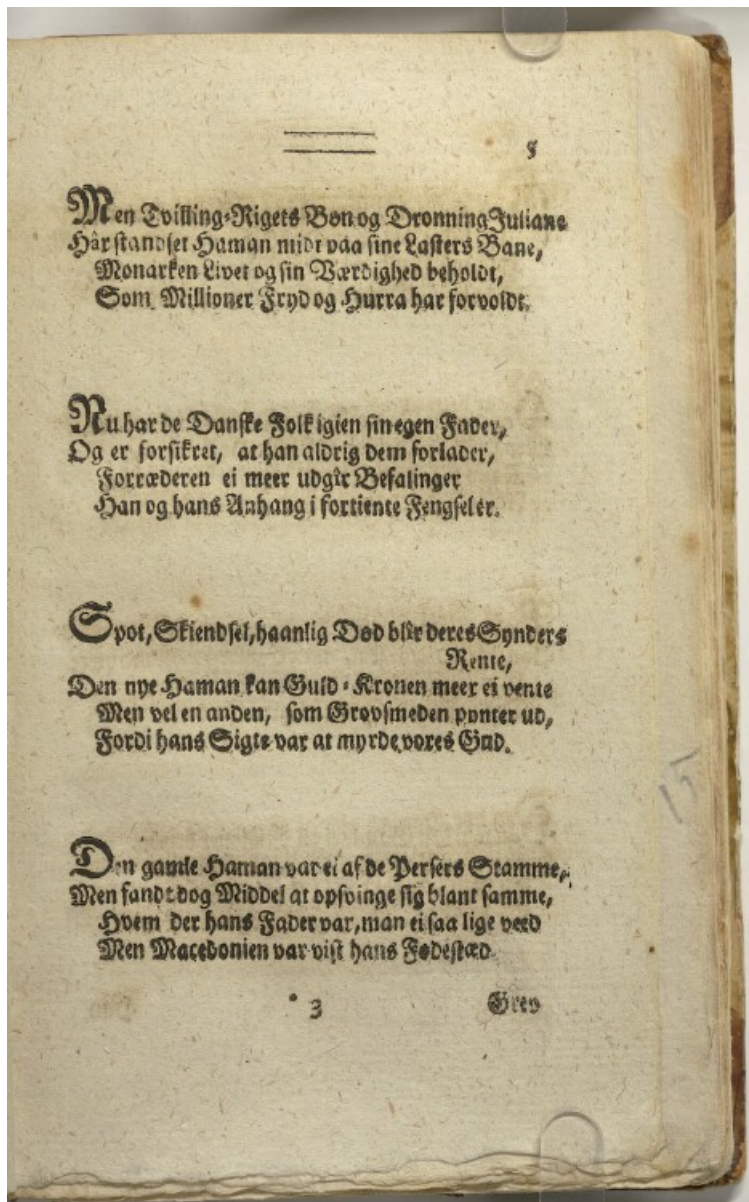 5
Men Tvilling-Rigets Bøn og Dronning Juliane
Hâr standset Haman midt paa sine Lasters Bane,
Monarken Livet og sin Værdighed beholdt,
Som Millioner Fryd og Hurra har forvoldt.
Nu har de Danske Folk igien sin egen Fader,
Og er forsikret, at han aldrig dem forlader,
Forræderen ei meer udgîr Befalinger
Han og hans Anhang i fortiente Fengseler.
Spot, Skiendsel, haanlig Død blîr deres Synders
Rente,
Den nye Haman kan Guld-Kronen meer ei vente
Men vel en anden, som Grovsmeden ponter ud,
Fordi hans Sigte var at myrde vores Gud.
Den gamle Haman var ei af de Persers Stamme,
Men fandt dog Middel at opsvinge sig blant samme,
Hvem der hans Fader var, man ei saa lige veed
Men Macedonien var vist hans Fødestæd.
* 3
Grev
15